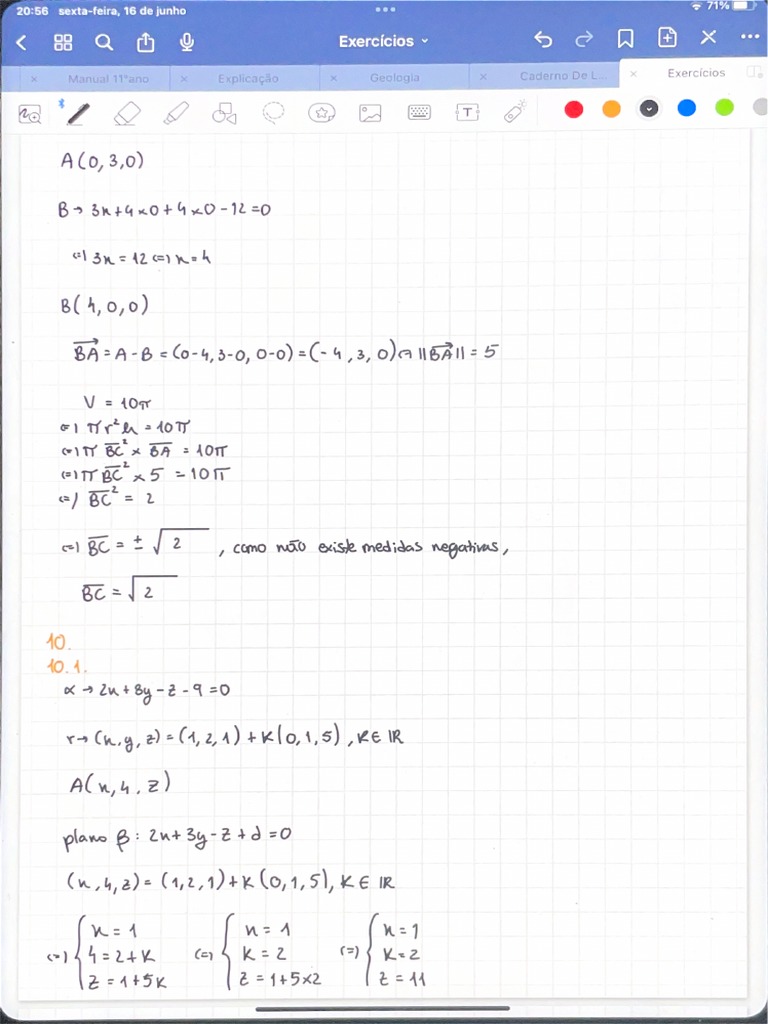 20:56 sexta-feira, 16 de junho
71%
Exercícios
Manual 11ºano
Explicação
Geologia
Caderno De L...
Exercícios
A(0,3,0)
B → 3x+4×0+4×0-12=0
(=) 3x = 12 (=) x = 4
B(4,0,0)
BA = A-B = (0-4, 3-0, 0-0) = (-4, 3, 0) → ||BA|| = 5
V = 10π
(=) πr²h = 10π
(=) π BC² × BA = 10π
(=) π BC² × 5 = 10π
(=) BC² = 2
(=) BC = ± √2 , como não existe medidas negativas,
BC = √2
10.
10.1.
α → 2x+3y-z-9=0
r → (x,y,z) = (1,2,1) + K(0,1,5), K∈ IR
A(x,4,z)
plano β: 2x+3y-z+d=0
(x,4,z) = (1,2,1)+K(0,1,5), K∈ IR
(=) { x=1 (=) { x=1 (=) { x=1
4=2+K K=2 K=2
z=1+5K z=1+5×2 z=11